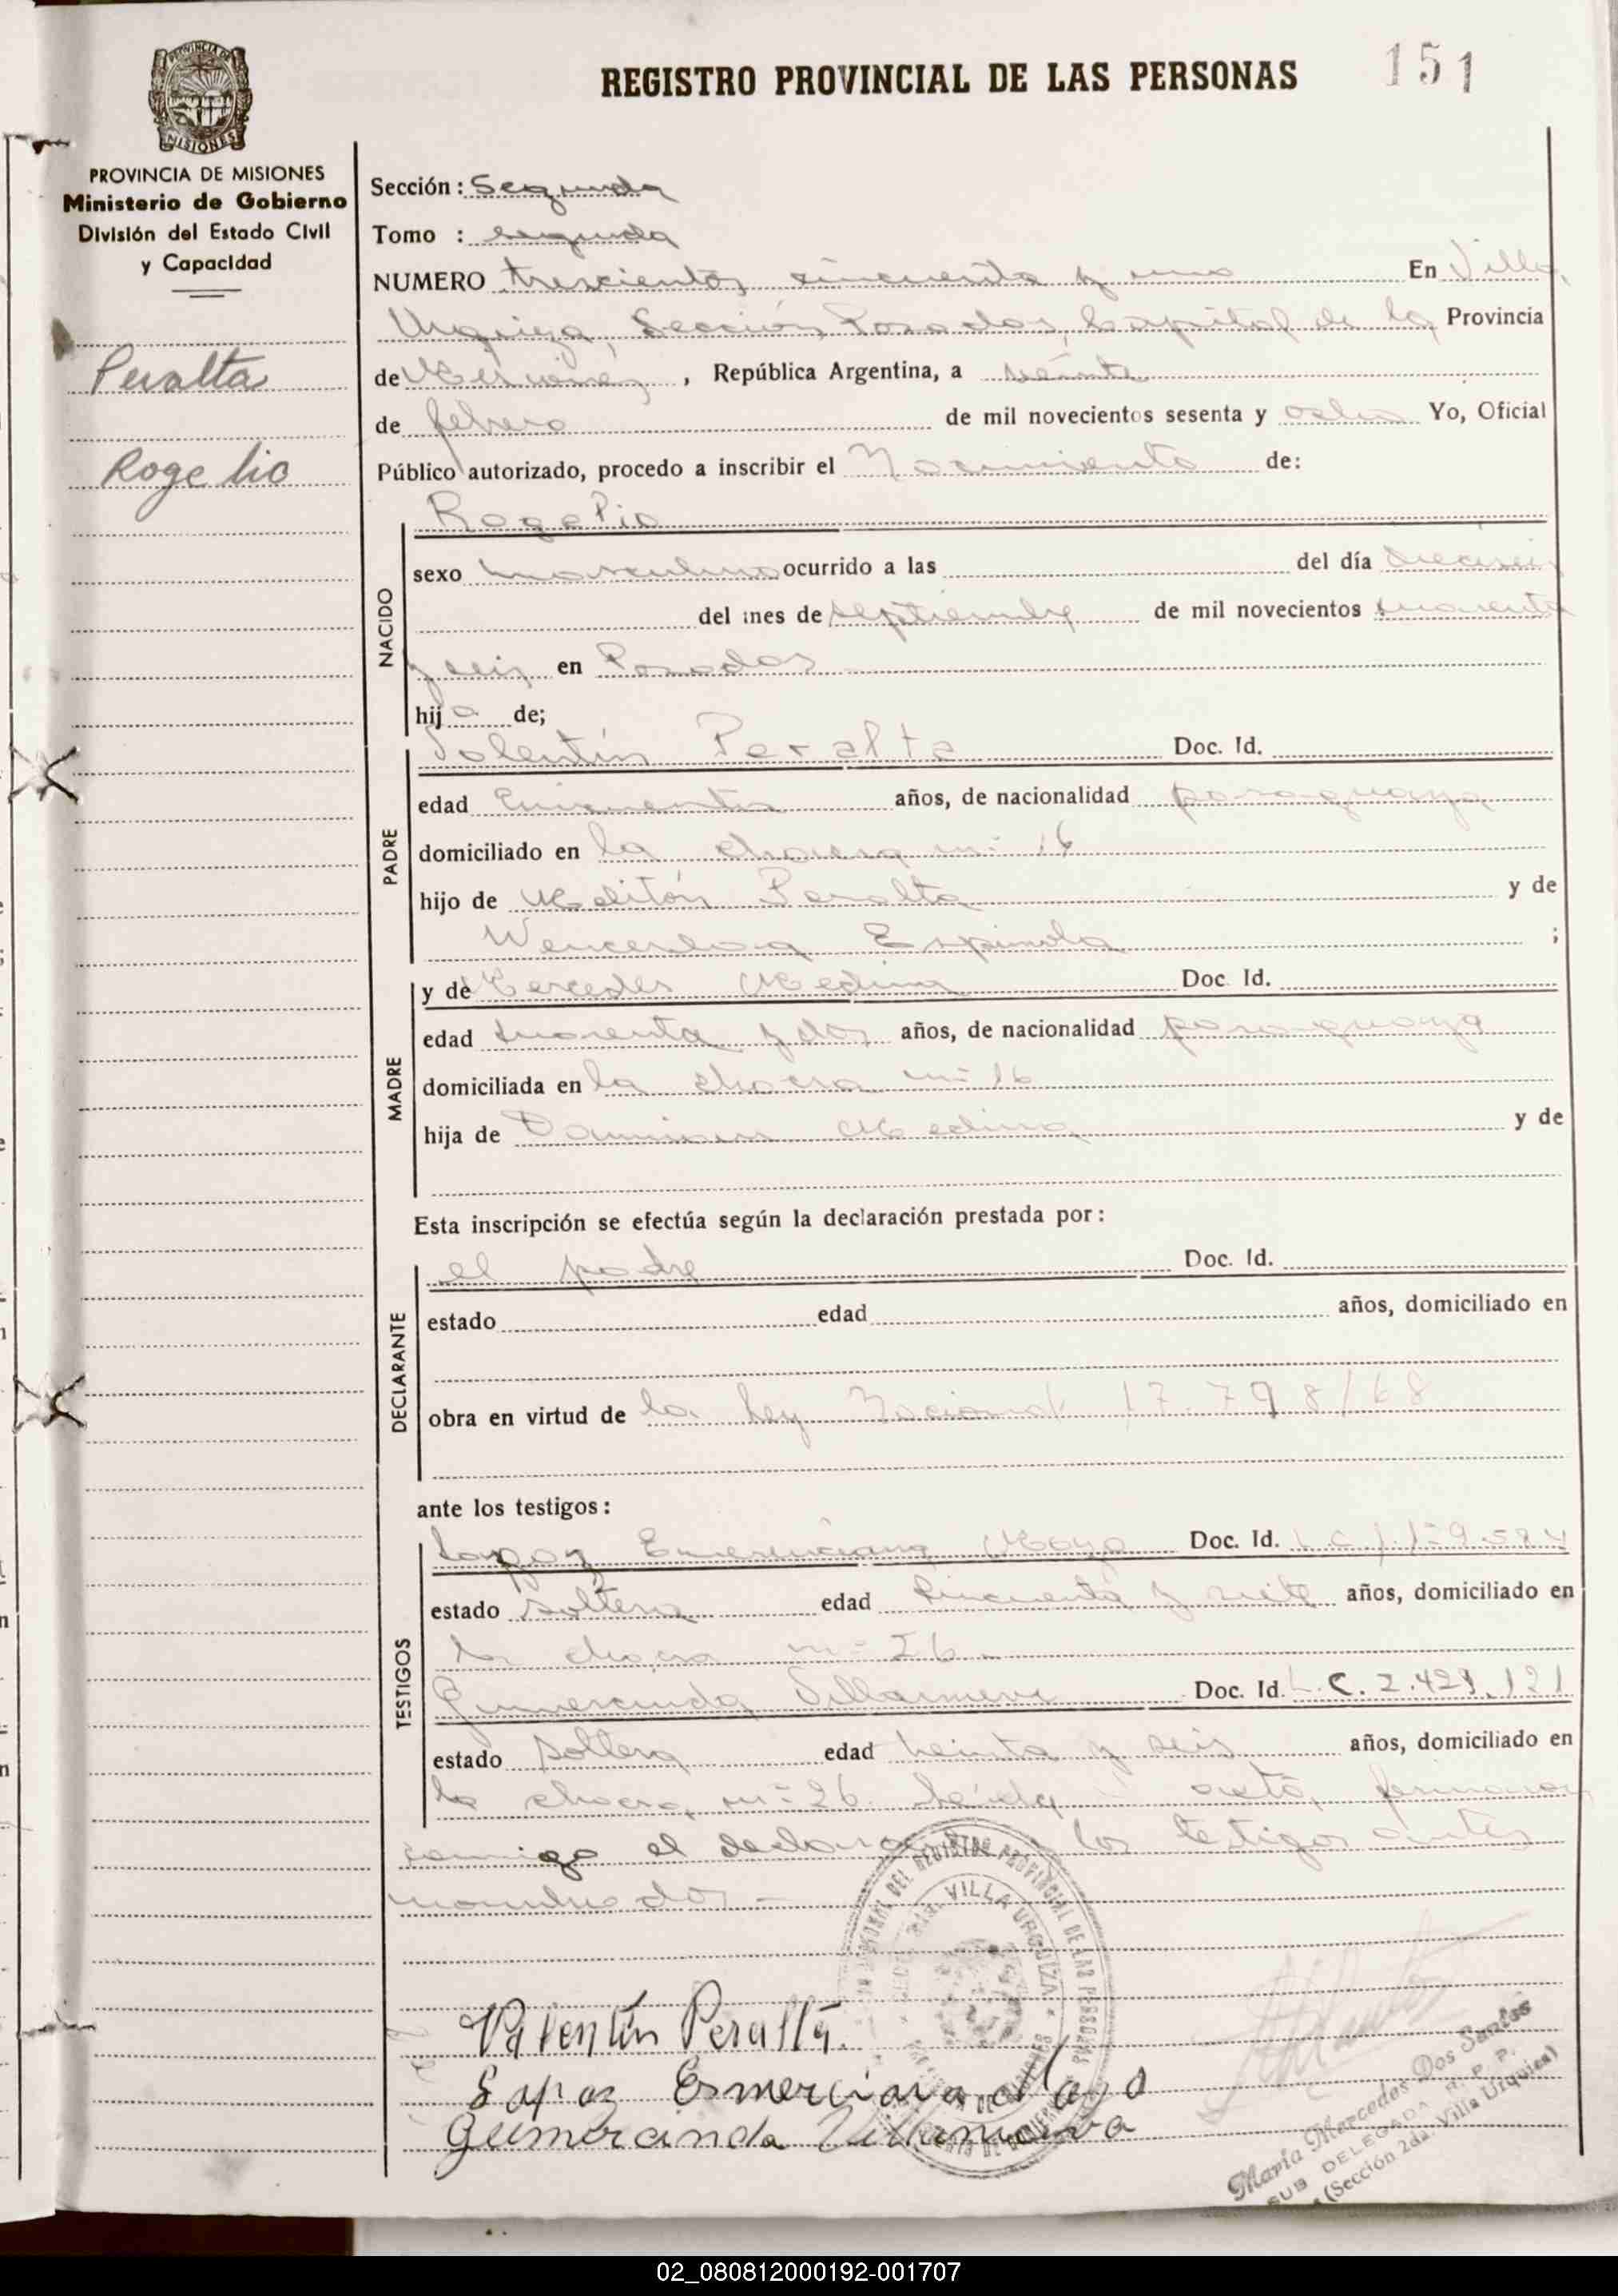 REGISTRO PROVINCIAL DE LAS PERSONAS 151
PROVINCIA DE MISIONES
MISIONES
PROVINCIA DE MISIONES
Ministerio de Gobierno
División del Estado Civil
y Capacidad
Peralta
Rogelio
Sección: Segunda
Tomo : segunda
NUMERO trescientos cincuenta y uno En Villa
Urquiza, Sección Posadas, Capital de la Provincia
de Misiones, República Argentina, a veinte
de febrero de mil novecientos sesenta y ocho Yo, Oficial
Público autorizado, procedo a inscribir el Nacimiento de:
NACIDO
Rogelio
sexo masculino ocurrido a las del día dieciseis
del mes de septiembre de mil novecientos cuarenta
y seis en Posadas
hijo de;
PADRE
Valentín Peralta Doc. Id.
edad cincuenta años, de nacionalidad paraguaya
domiciliado en la chacra nº 16
hijo de Melitón Peralta y de
Wenceslaa Espinola ;
MADRE
y de Mercedes Medina Doc. Id.
edad cuarenta y dos años, de nacionalidad paraguaya
domiciliada en la chacra nº 16
hija de Damiana Medina y de
Esta inscripción se efectúa según la declaración prestada por:
DECLARANTE
el padre Doc. Id.
estado edad años, domiciliado en
obra en virtud de la ley Nacional 17.798/68
ante los testigos:
TESTIGOS
Lopaz Emerenciana Moya Doc. Id. L.C.
estado soltera edad cincuenta y siete años, domiciliado en
la chacra nº 26
Gumercinda Villanueva Doc. Id. L.C. 2.429.121
estado soltera edad treinta y seis años, domiciliado en
la chacra nº 26. Leída acta, firmaron
conmigo el declarante los testigos antes
nombrados.-
VILLA URQUIZA
DEL REGISTRO PROVINCIAL DE LAS PERSONAS
Valentín Peralta.
Sapaz Esmerciava Moya
Gumercinda Villanueva
María Mercedes Dos Santos
SUB DELEGADA R. P. P.
(Sección 2da. Villa Urquiza)
02_080812000192-001707